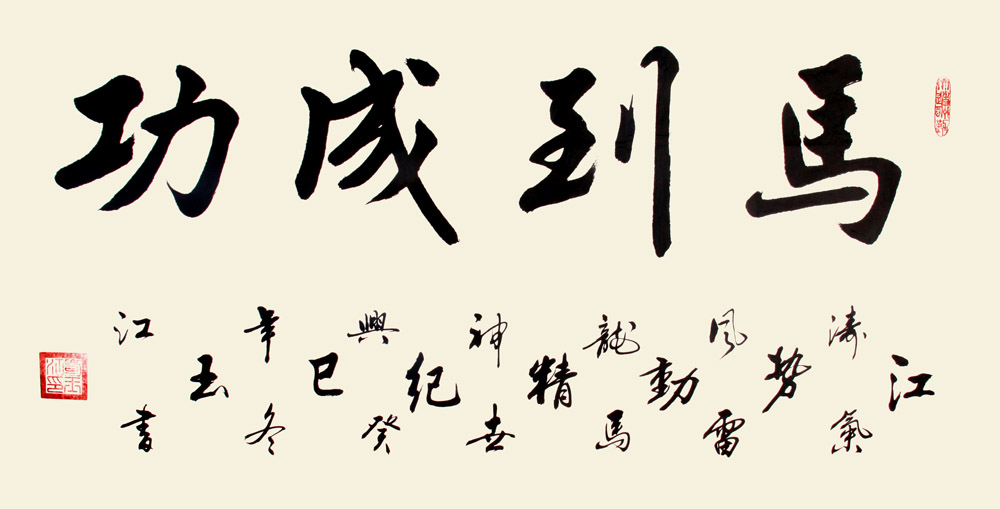 馬到成功
江濤氣勢風雷動龍馬精神世紀興癸巳年冬玉江書